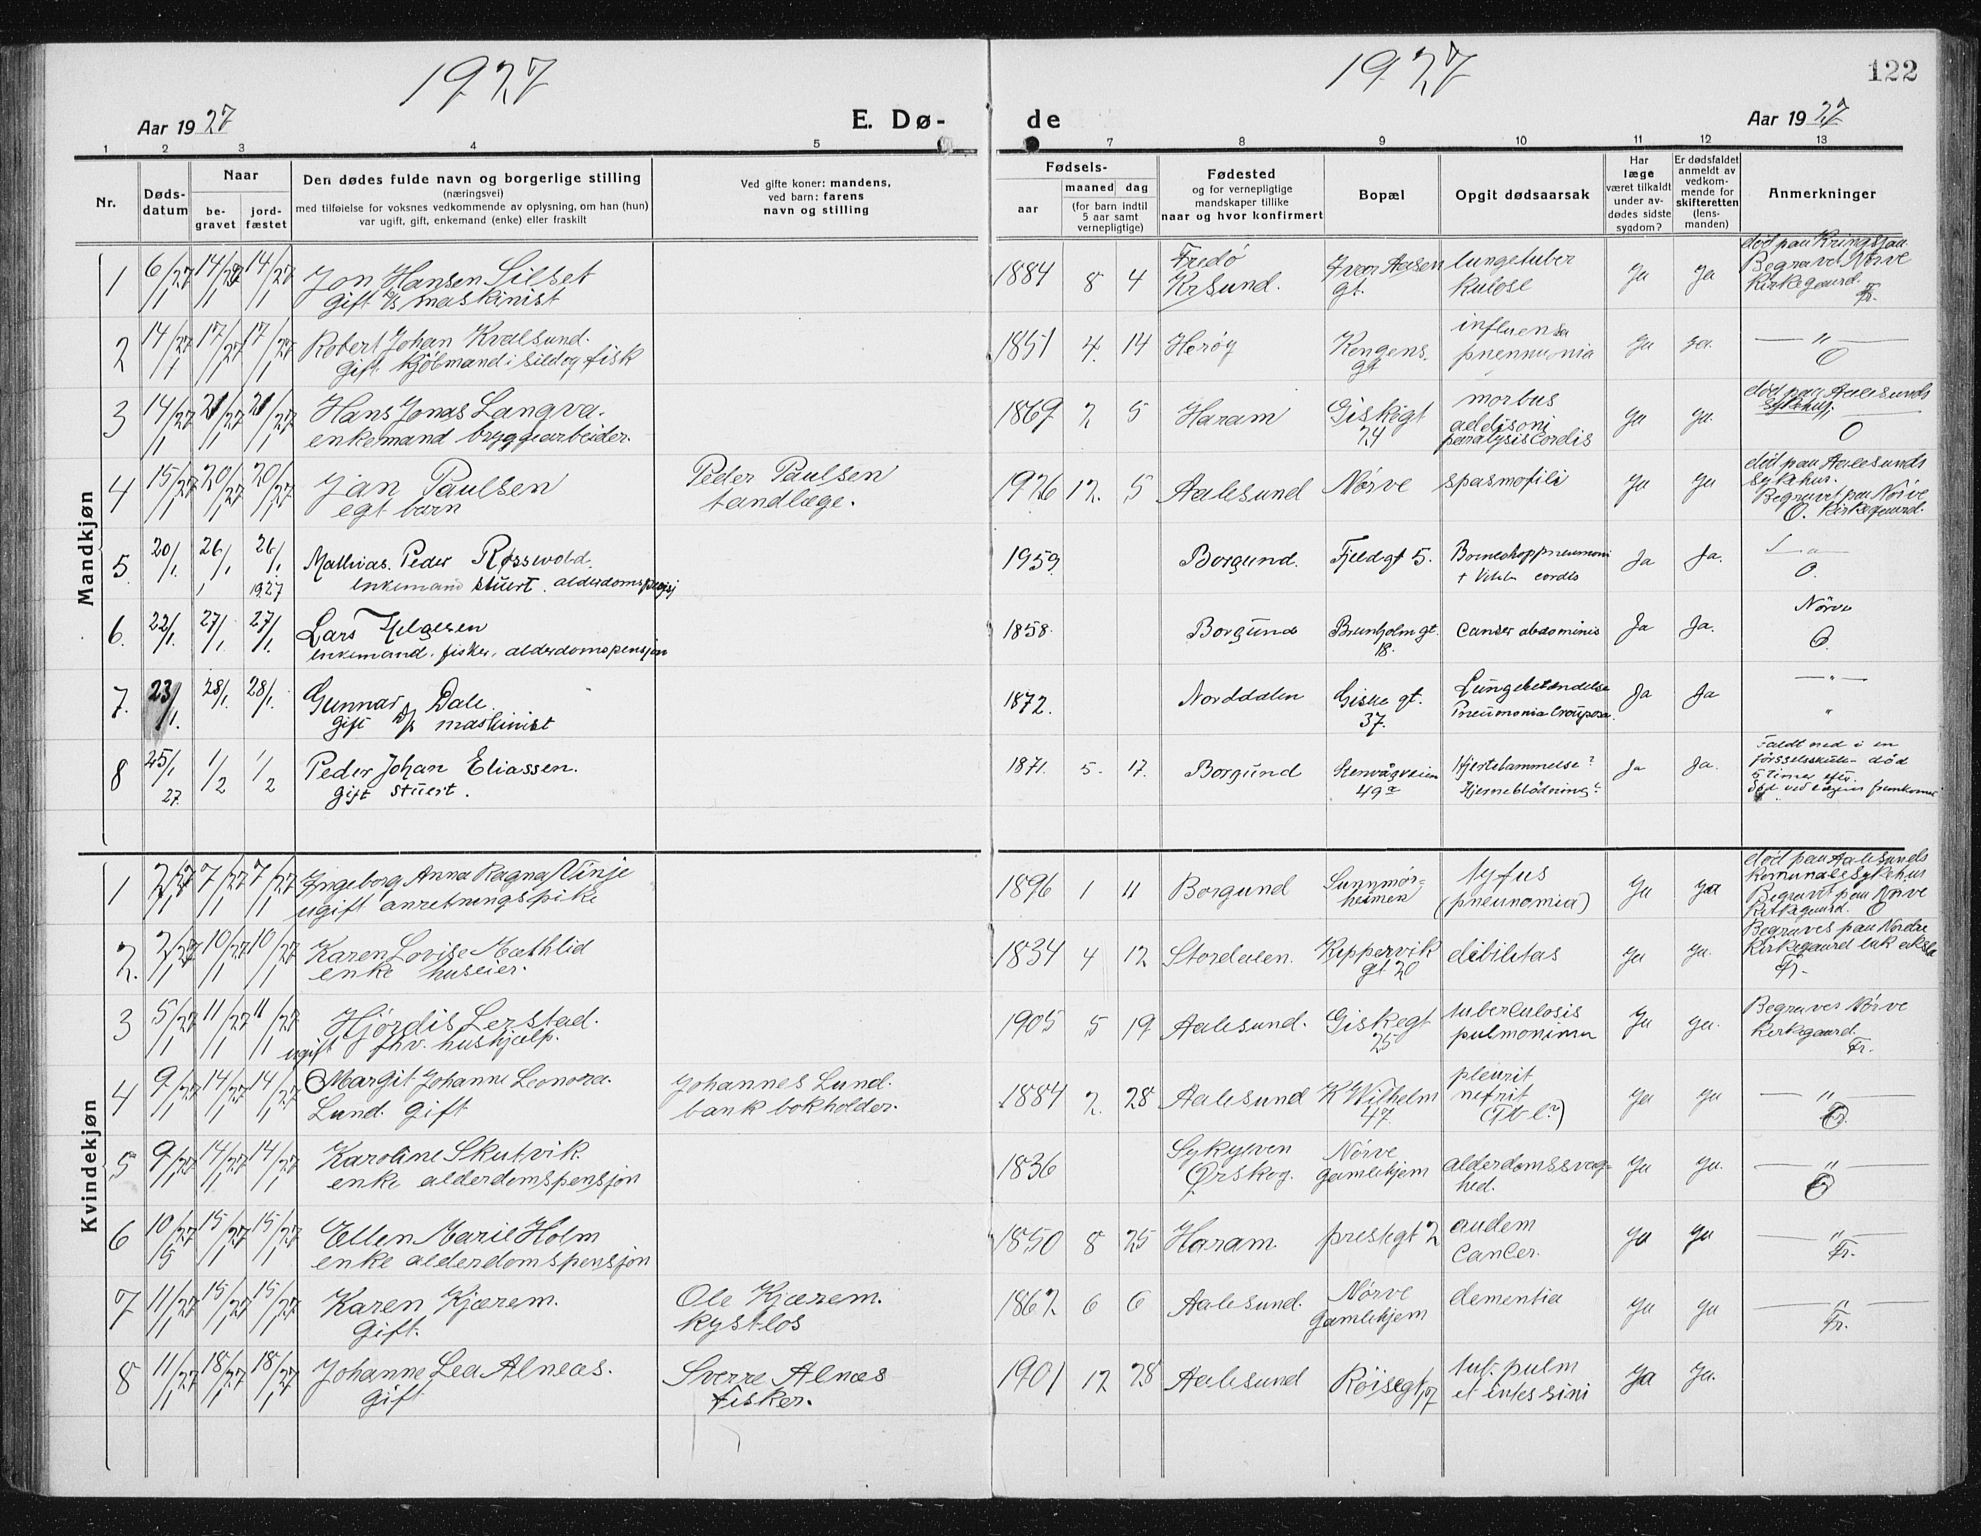 1927
1927
122
Aar 1927
E. Dø-
de
Aar 1927
1 2 3 4 5 7 8 9 10 11 12 13
Nr.
Døds-
datum
Naar
be-
gravet
jord-
fæstet
Den dødes fulde navn og borgerlige stilling
(næringsvei)
med tilføielse for voksnes vedkommende av oplysning, om han (hun)
var ugift, gift, enkemand (enke) eller fraskilt
Ved gifte koner: mandens,
ved barn: farens
navn og stilling
Fødsels-
aar
maaned dag
(for barn indtil
5 aar samt
vernepligtige)
Fødested
og for vernepligtige
mandskaper tillike
naar og hvor konfirmert
Bopæl
Opgit dødsaarsak
Har
læge
været tilkaldt
under av-
dødes sidste
sygdom?
Er dødsfaldet
anmeldt av
vedkom-
mende for
skifteretten
(lens-
manden)
Anmerkninger
Mandkjøn
1 6/1 27 14/1 27 14/1 27 Jon Hansen Silset
gift maskinist
1884 8 4 Fredø
Krsund.
Ivar Aasen
gt.
lungetuber
kulose
Ja Ja
død paa Kringsjaa
Begravet Nørve
Kirkegaard.
Fr.
2 14/1 27 17/1 27 17/1 27 Robert Johan Kvalsund.
gift kjøbmand i sild og fisk
1851 4. 14 Herøy
influensa
pneumonia
Ja Ja.
— " —
O
3 14/1 27 21/1 27 21/1 27 Hans Jonas Langva.
enkemand bryggearbeider.
1869 2 5 Haram Giskegt
74
morbus
addisoni
paralysis cordis
Ja Ja.
død paa Aalesunds
Sykehus.
O
4 15/1 27 20/1 27 20/1 27 Jan Paulsen
egt barn
Peder Paulsen
tandlæge.
1926 12. 5 Aalesund Nørve spasmofili Ja Ja
død paa Aalesunds
sykehus.
Begravet paa Nørve
O. Kirkegaard.
5. 20/1. 26/1. 26/1. 1927 Mathias Peder Røsswold.
enkemand stuert. alderdomspensj
1959. Borgund. Fjeldgt 5.
Ja Ja.
O.
6. 22/1. 27/1. 27/1. Lars Helgesen
enkemand. fisker. alderdomspensjon
1858. Borgund Brunholmgt.
18.
Canser abdominis Ja Ja.
Nørve
O.
7. 23/1. 28/1. 28/1. Gunnar Dale.
gift maskinist
1872. Norddalen Giske gt.
37.
Lungebetændelse
Pneumonia Crouposa.
Ja Ja
— " —
"
8 25/1 27. 1/2 1/2 Peder Johan Eliassen.
gift stuert.
1871. 5. 17. Borgund Stenvågveien
49a
Hjertelammelse?
Hjerneblødning?
Ja Ja.
Faldt ned i en
død
5 timer efter.
Kvindekjøn
1 2/1 27 7/1 27 7/1 27 Ingeborg Anna Ragna Vinje
ugift anretningspike
1896 1 11 Borgund Sunnmør-
heimen
tyfus
(pneunomia)
Ja Ja
død paa Aalesunds
Komunale sykehus
Begravet paa Nørve
Kirkegaard. O
2. 2/1 27 10/1 27 10/1 27 Karen Lovise Mæthlid
enke huseier.
1834 4 12 Stordalen. Kippervik
gt 20
dibilitas Ja Ja.
Begraves paa Nordre
Kirkegaard
Fr.
3 5/1 27 11/1 27 11/1 27 Hjørdis Lerstad.
ugift fhv. hushjælp.
1905 5 19 Aalesund. Giskegt
25
tuberculosis
pulmonima
Ja Ja.
Begraves Nørve
Kirkegaard.
Fr.
4 9/1 27 14/1 27 14/1 27 Margit Johanne Leonora.
Lund. gift
Johannes Lund.
bank bokholder.
1884 2. 28 Aalesund K Wilhelm
47.
pleurit
nefrit
Ja Ja
— " —
O
5 9/1 27 14/1 27 14/1 27 Karoline Skutvik.
enke alderdomspensjon
1836 Sykylven
Ørskog.
Nørve
Gamlehjem
alderdomssvag-
hed.
Ja Ja.
— " —
O
6 10/5 27 15/1 27 15/1 27 Ellen Marie Holm
enke alderdomspensjon
1850 8 25 Haram. prestegt 2
audem
Cancer.
Ja Ja
— " —
Fr.
7 11/1 27 15/1 27 15/1 27 Karen Kjærem.
Gift.
Ole Kjærem.
kystlos
1862 6 6 Aalesund. Nørve
Gamlehjem
dementia Ja Ja
— " —
Fr.
8 11/1 27 18/1 27 18/1 27 Johanne Lea Alnæs.
gift
Sverre Alnæs
Fisker.
1901 12 28 Aalesund Röisegt
tub. pulm
et intessini
Ja Ja.